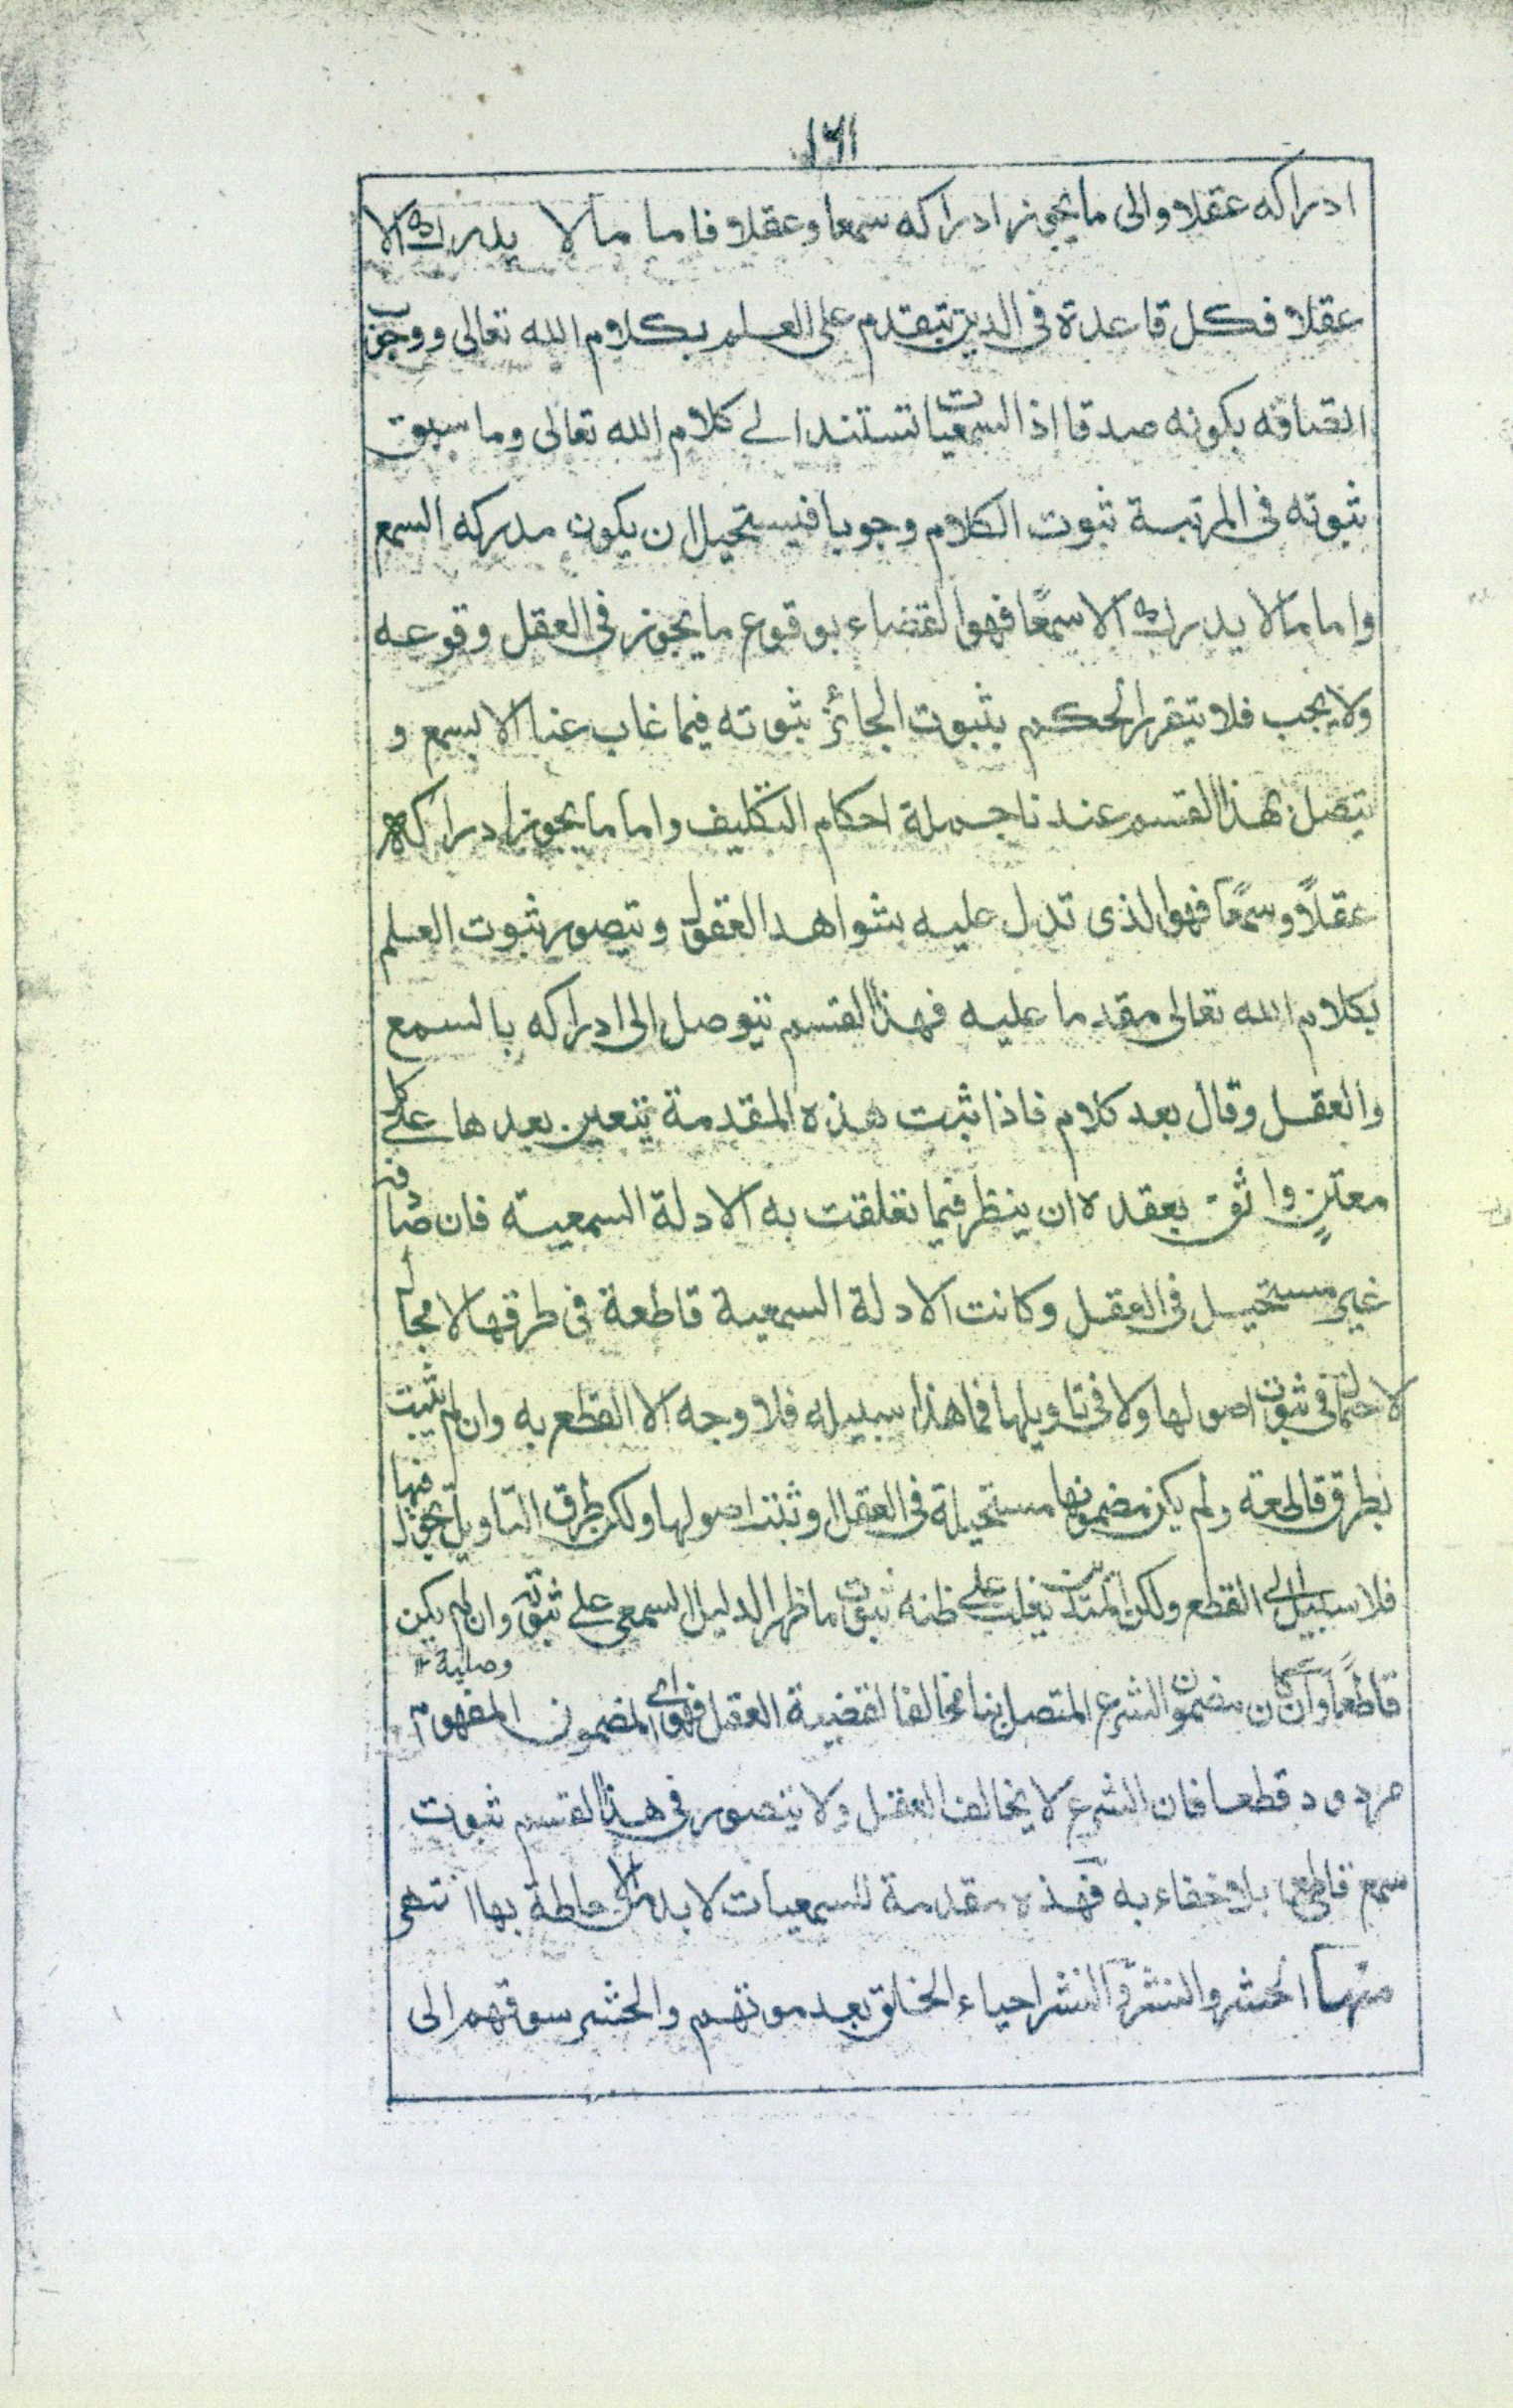 ١٦١
ادراكه عقلا والى ما يجوز ادراكه سمعا وعقلا فاما ما لا يدرك الا
عقلا فكل قاعدة فى الدين تتقدم على العلم بكلام الله تعالى ووجوب
اتصافه بكونه صدقا اذ السمعيات تستند الے كلام الله تعالى وما سبق
ثبوته فى المرتبة ثبوت الكلام وجوبا فيستحيل ان يكون مدركه السمع
واما ما لا يدرك الا سمعًا فهو القضاء بوقوع ما يجوز فى العقل وقوعه
ولا يجب فلا يتقرر الحكم بثبوت الجائز ثبوته فيما غاب عنا الا بسمع و
يتصل بهذا القسم عندنا جملة احكام التكليف واما ما يجوز ادراكه
عقلاً وسمعًا فهو الذى تدل عليه شواهد العقول ويتصور ثبوت العلم
بكلام الله تعالى مقدما عليه فهذا القسم يتوصل الى ادراكه بالسمع
والعقل وقال بعد كلام فاذا ثبت هذه المقدمة يتعين بعدها علے كل
معتن واثق بعقده ان ينظر فيما تعلقت به الادلة السمعية فان صادفه
غير مستحيل فى العقل وكانت الادلة السمعية قاطعة فى طرقها لا مجال
لاحتمال فى ثبوت اصولها ولا فى تاويلها فما هذا سبيله فلا وجه الا القطع به وان لم يثبت
بطرق قاطعة ولم يكن مضمونها مستحيلة فى العقل او ثبتت اصولها ولكن طرق التاويل يجول فيها
فلا سبيل الى القطع ولكن المتدين يغلب علے ظنه ثبوت ما ظهر الدليل السمعى علے ثبوته وان لم يكن
وصلية
قاطعًا وان كان مضمون الشرع المتصل بنا مخالفا لقضية العقل فهو اى المضمون المفهوم
مردود قطعا فان الشرع لا يخالف العقل ولا يتصور فى هذا القسم ثبوت
سمع قاطع بلا خفاء به فهذه مقدمة للسمعيات لا بد من الاحاطة بها انتهى
منها الحشر والنشر والنشر احياء الخلق بعد موتهم والحشر سوقهم الى